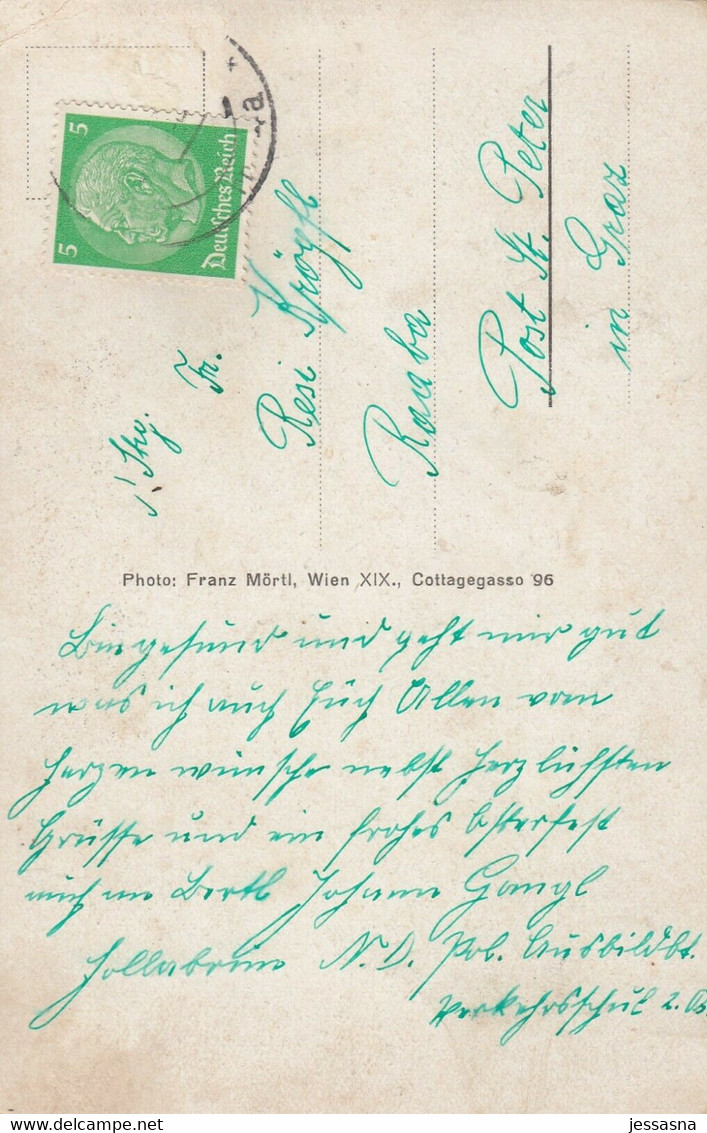 5
5
Deutsches Reich
a
Fr.
Resi Krögpl
Raaba
Post St. Peter
in Graz
Photo: Franz Mörtl, Wien XIX., Cottagegasso 96
Bin gesund und geht mir gut
was ich auch Euch Allen vom
Herzen wünsche nebst herzlichsten
Grüsse und ein frohes Osterfest
auch an Bertl Johann Gangl
Hollabrunn N.D. Pol. Ausbildbt.
Verkehrsschul 2.
jessasna